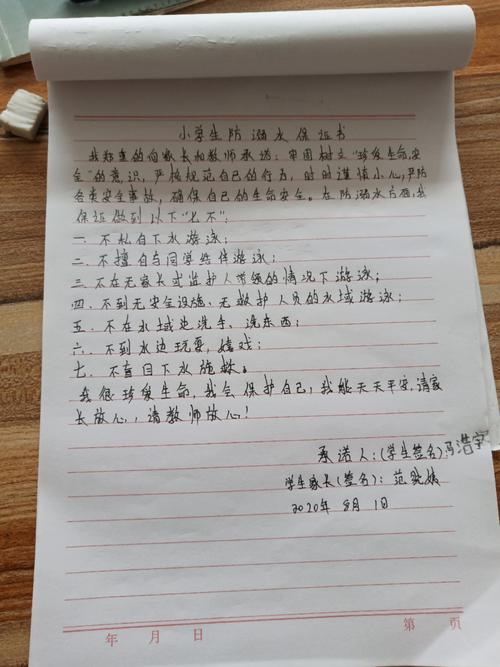 小学生防溺水保证书
我郑重的向家长和教师承诺：牢固树立“珍爱生命，安
全”的意识，严格规范自己的行为，时时谨慎小心，严防
各类安全事故，确保自己的生命安全。在防溺水方面，我
保证做到以下“七不”：
一．不私自下水游泳；
二．不擅自与同学结伴游泳；
三．不在无家长或监护人带领的情况下游泳；
四．不到无安全设施、无救护人员的水域游泳；
五．不在水域边洗手、洗东西；
六．不到水边玩耍、嬉戏；
七．不盲目下水施救。
我很珍爱生命，我会保护自己，我能天天平安，请家
长放心，请教师放心！
承诺人：（学生签名）冯浩宇
学生家长（签名）：范
2020年 8月 1日
年 月 日 第 页